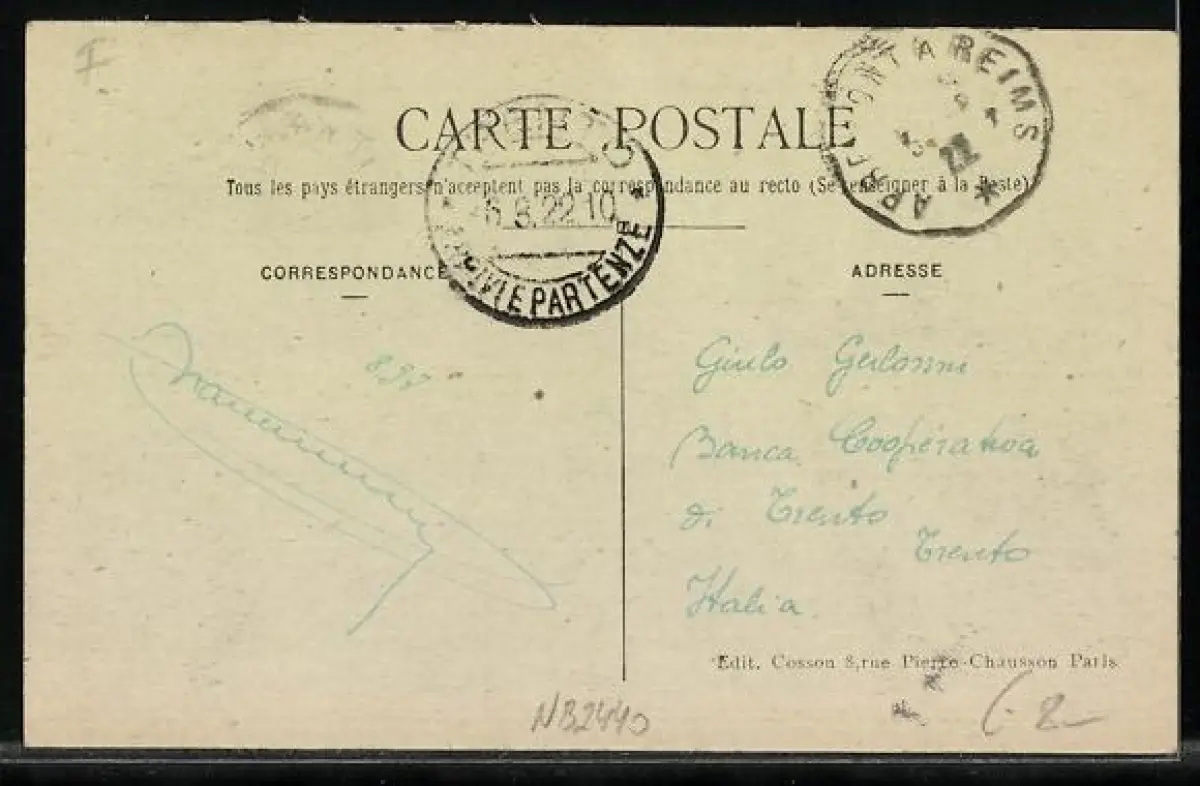 I
CARTE POSTALE
Tous les pays étrangers n'acceptent pas la correspondance au recto (Se renseigner à la Poste)
A REIMS
22
8.22.10
PARTENZE
CORRESPONDANCE
ADRESSE
Giulo
Banca Cooperativa
di Trento
Trento
Italia
Edit. Cosson 8, rue Pierre-Chausson Paris
NB2440